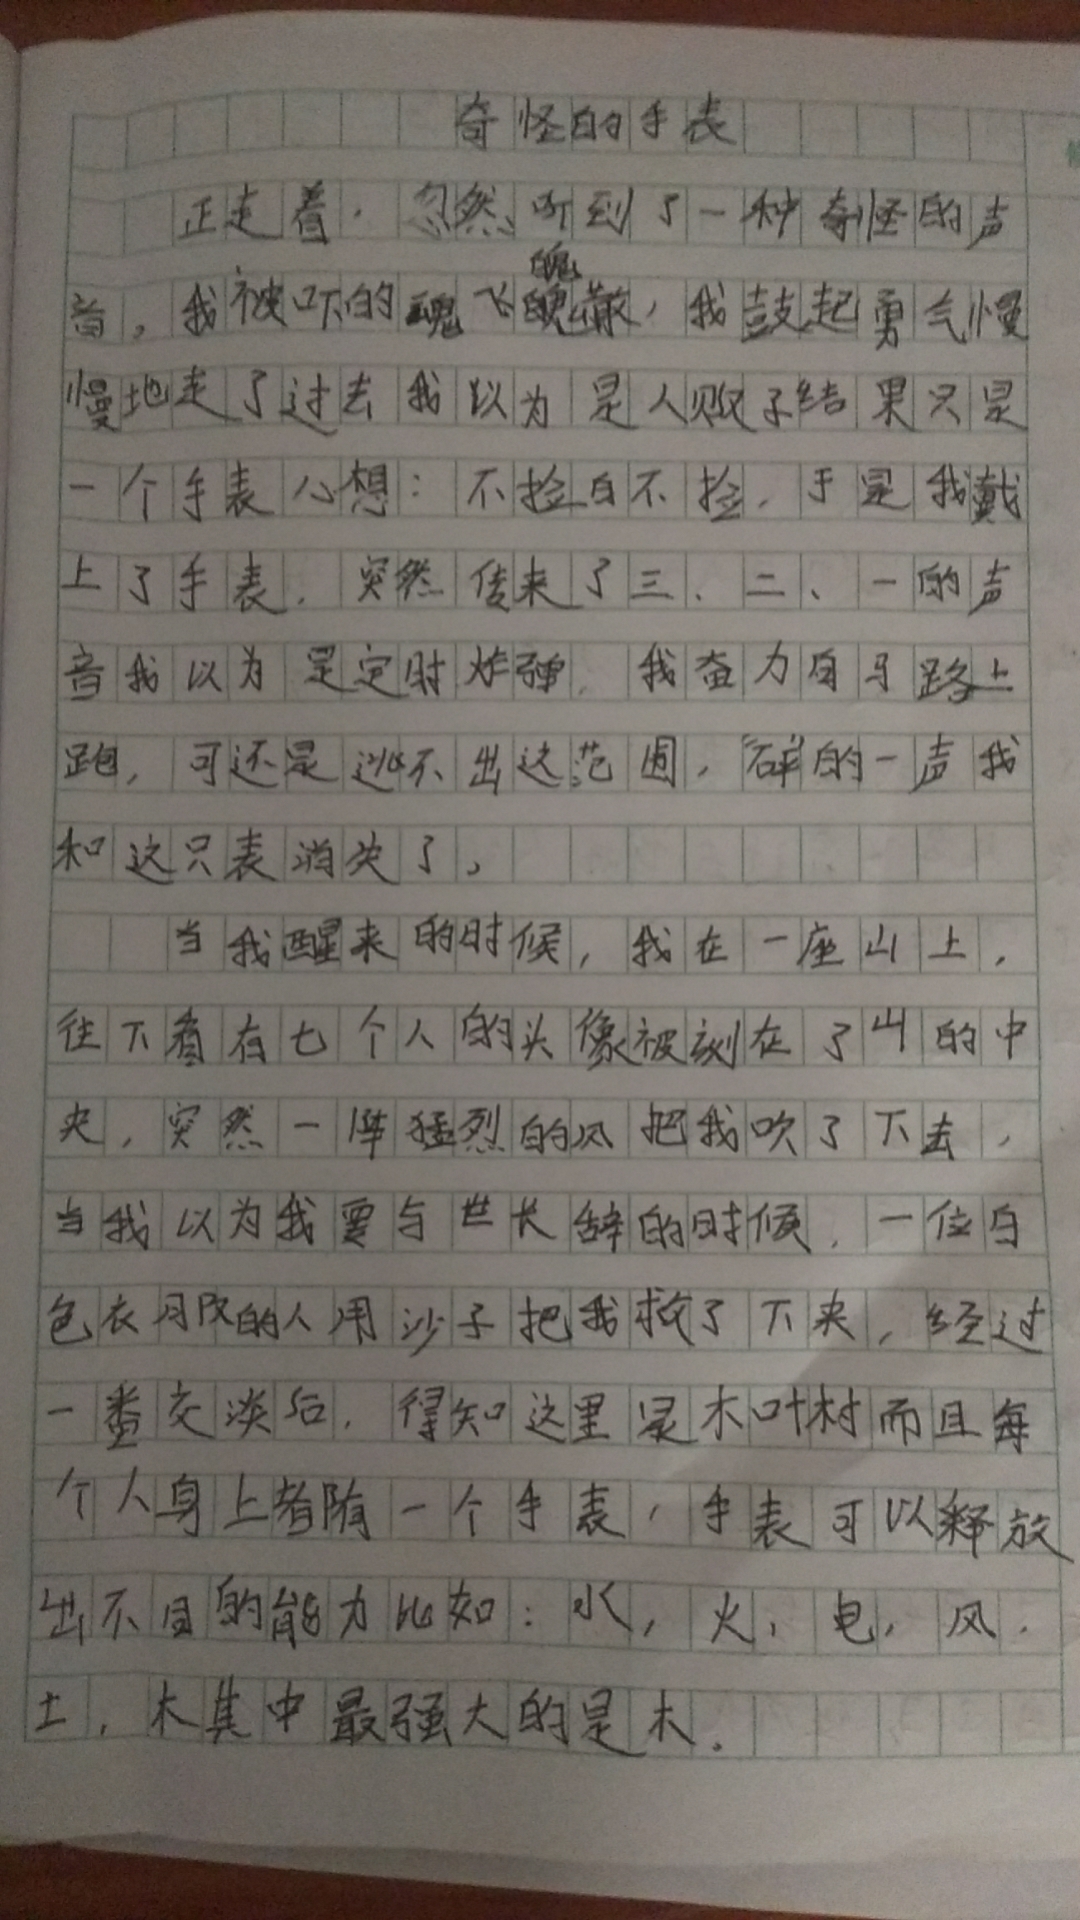 奇怪的手表
正走着，忽然听到了一种奇怪的声
音，我被吓的魂飞魄散，我鼓起勇气慢
慢地走了过去我以为是人贩子结果只是
一个手表心想：不捡白不捡，于是我戴
上了手表，突然传来了三、二、一的声
音我以为是定时炸弹，我奋力向马路上
跑，可还是逃不出这范围，“砰”的一声我
和这只表消失了。
当我醒来的时候，我在一座山上，
往下看有七个人的头像被刻在了山的中
央，突然一阵猛烈的风把我吹了下去，
当我以为我要与世长辞的时候，一位白
色衣服的人用沙子把我救了下来，经过
一番交谈后，得知这里是木叶村而且每
个人身上都有一个手表，手表可以释放
出不同的能力比如：水，火，电，风，
土，木其中最强大的是木。